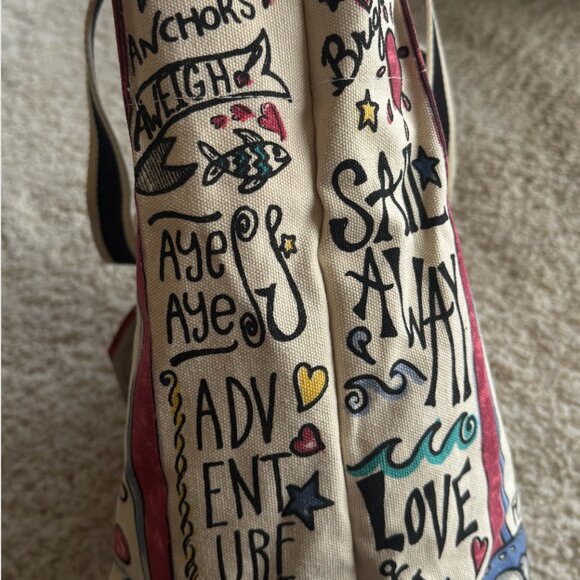 ANCHORS
AWEIGH
AYE
AYE
ADV
ENT
URE
SAIL
AWAY
LOVE